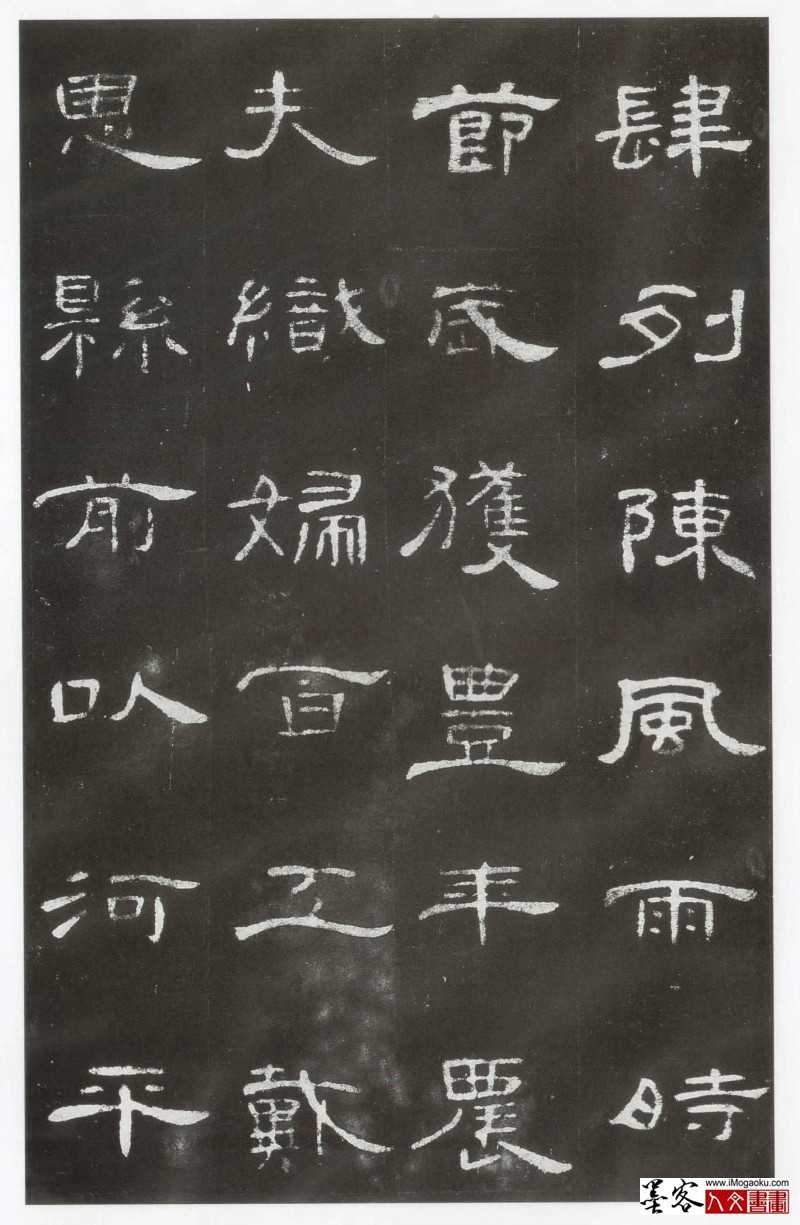 肆列陳風雨時
節歳獲豊年農
夫織婦百工戴
恩縣前以河平
www.iMogaoku.com
墨客
人文書畫